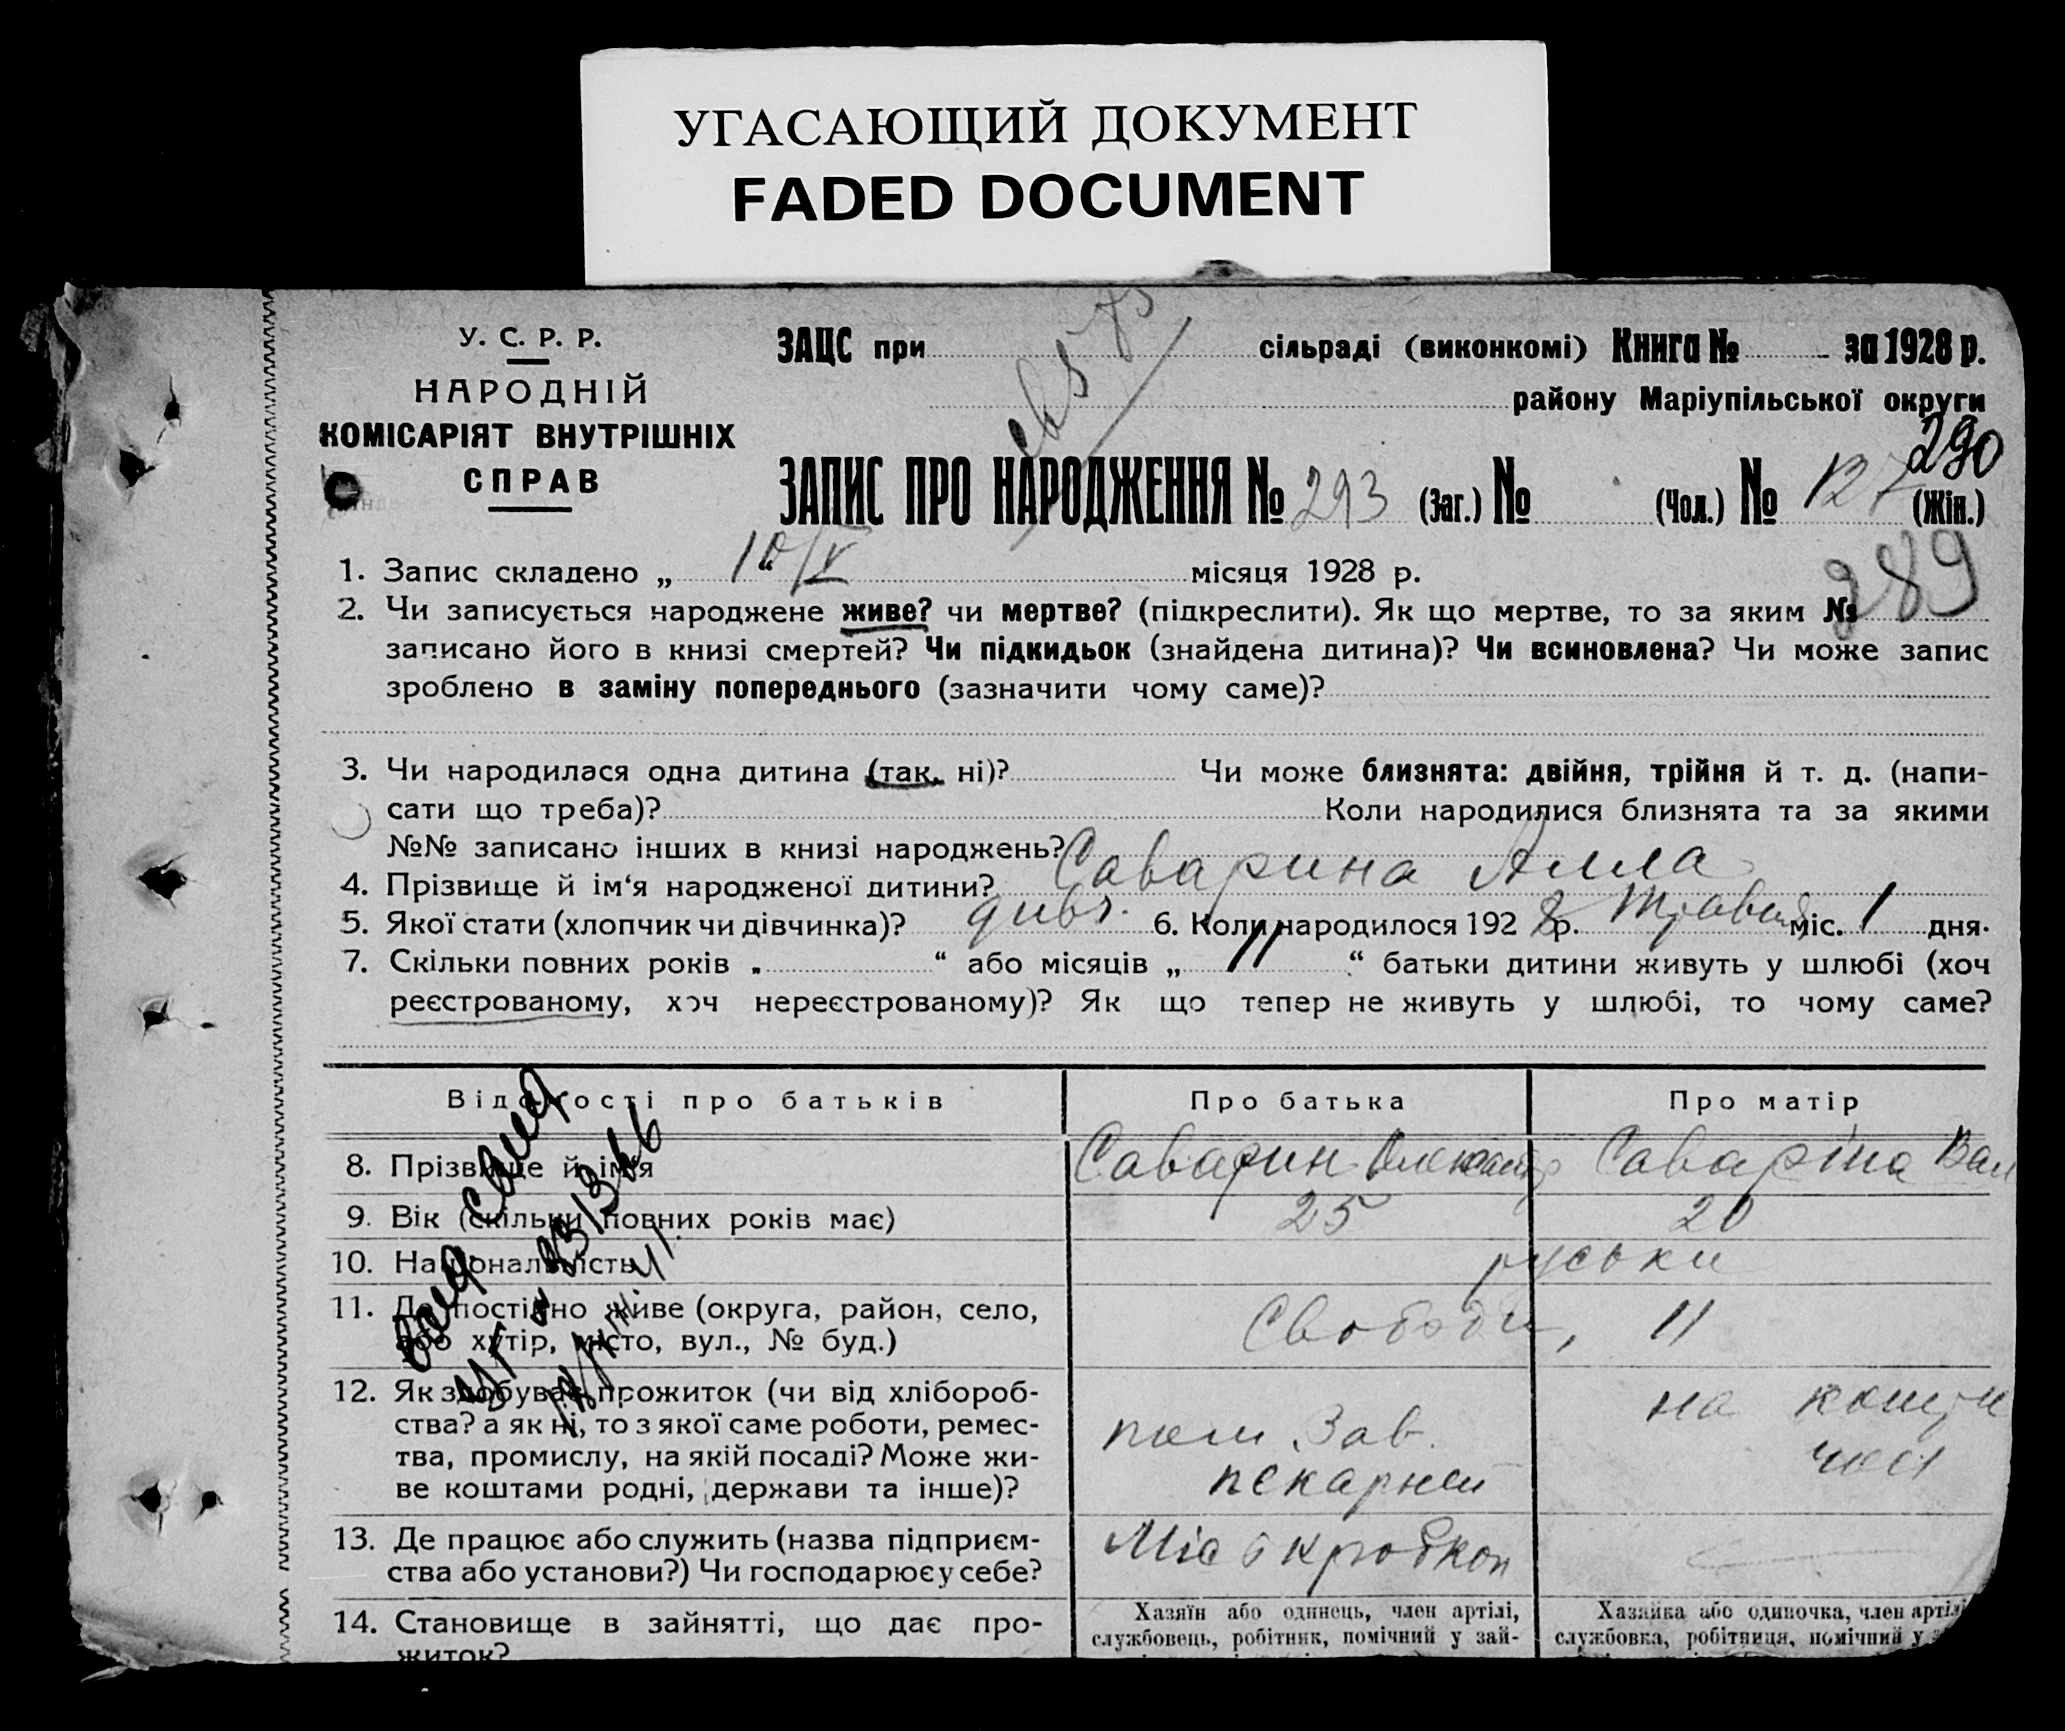 УГАСАЮЩИЙ ДОКУМЕНТ
FADED DOCUMENT
У. С. Р. Р.
НАРОДНІЙ
КОМІСАРІЯТ ВНУТРІШНІХ
СПРАВ
ЗАЦС при сільраді (виконкомі) Книга № за 1928 р.
району Маріупільської округи
290
ЗАПИС ПРО НАРОДЖЕННЯ № 293 (Заг.) № (Чол.) № 127 (Жін.)
1. Запис складено „ 10/V місяця 1928 р.
289
2. Чи записується народжене живе? чи мертве? (підкреслити). Як що мертве, то за яким №
записано його в книзі смертей? Чи підкидьок (знайдена дитина)? Чи всиновлена? Чи може запис
зроблено в заміну попереднього (зазначити чому саме)?
3. Чи народилася одна дитина (так, ні)? Чи може близнята: двійня, трійня й т. д. (напи-
сати що треба)? Коли народилися близнята та за якими
№№ записано інших в книзі народжень?
4. Прізвище й ім‘я народженої дитини? Саварина Алла
5. Якої стати (хлопчик чи дівчинка)? дивч. 6. Коли народилося 1928 р. Травня міс. 1 дня.
7. Скільки повних років „ “ або місяців „ 11 “ батьки дитини живуть у шлюбі (хоч
реєстрованому, хоч нереєстрованому)? Як що тепер не живуть у шлюбі, то чому саме?
Відомості про батьків Про батька Про матір
8. Прізвище й ім‘я Саварин Олександр Саваріна Вал
9. Вік (скільки повних років має) 25 20
10. Національність руськи
11. Де постійно живе (округа, район, село,
або хутір, місто, вул., № буд.) Свободи, 11
12. Як здобуває прожиток (чи від хлібороб-
ства? а як ні, то з якої саме роботи, ремес-
тва, промислу, на якій посаді? Може жи-
ве коштами родні, держави та інше)?
пом. Зав.
пекарней
на кошти
13. Де працює або служить (назва підприєм-
ства або установи?) Чи господарює у себе?
14. Становище в зайнятті, що дає про-
житок?
Хазяїн або одинець, член артілі,
службовець, робітник, помічний у зай-
Хазяйка або одиночка, член артілі
службовка, робітниця, помічний у